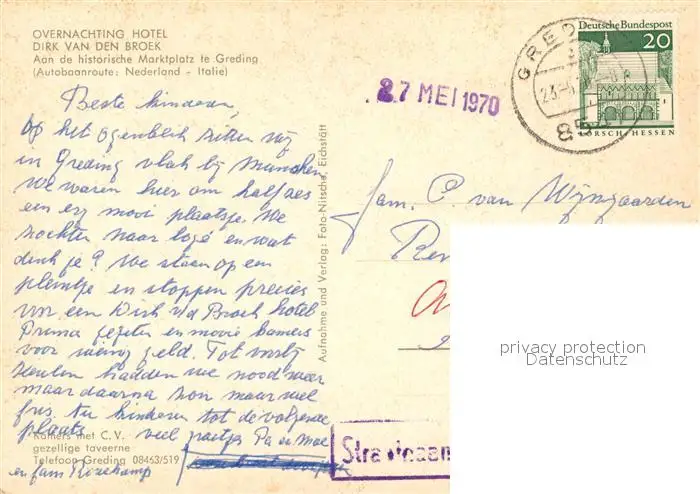 OVERNACHTING HOTEL
DIRK VAN DEN BROEK
Aan de historische Marktplatz te Greding
(Autobaanroute: Nederland - Italie)
Beste kinderen,
Op het ogenblick zitten wij
in Greding vlak bij Munchen
We waren hier om half zes
een erg mooi plaatsje. We
zochten naar logé en wat
denk je? We staen op een
pleintje en stoppen precies
voor een Dirk v/d Broek hotel
Prima gegeten en mooie kamers
voor weinig geld. Tot
hadden we nood weer
maar daarna zon maar wel
fris. Nu kinderen tot de volgende
plaats veel groetjes Pa en Moe
en fam
Kamers met C.V.
gezellige taveerne
Telefoon Greding 08463/519
Aufnahme und Verlag: Foto-Nitsche, Eichstätt
27 MEI 1970
GRED
23.-5.
85
Deutsche Bundespost
20
LORSCH HESSEN
fam. C. van Wijngaarden
privacy protection
Datenschutz